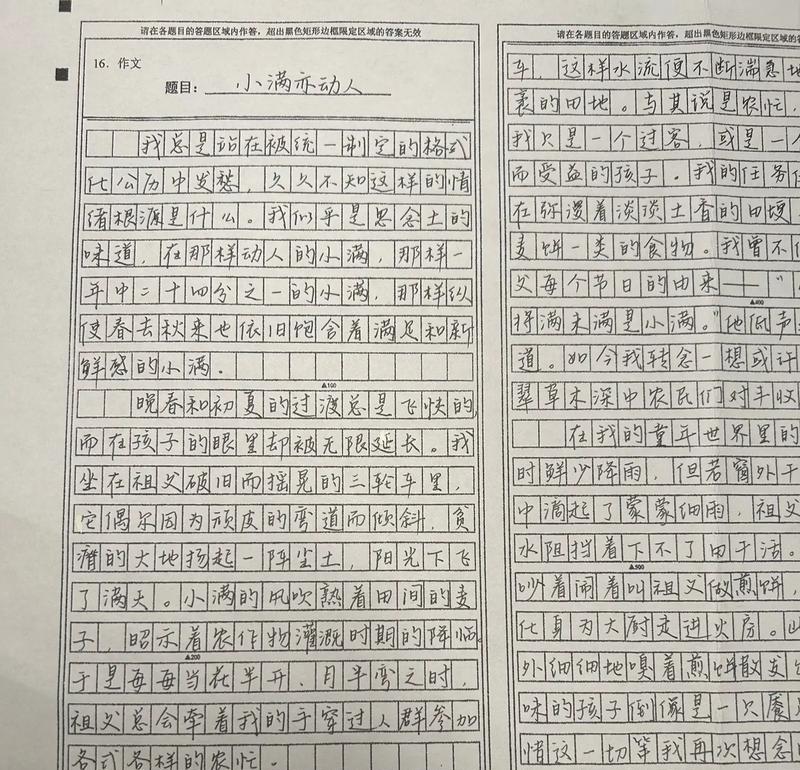 请在各题目的答题区域内作答，超出黑色矩形边框限定区域的答案无效
16. 作文
题目：小满亦动人
我总是站在被统一制定的格式
化公历中发愁，久久不知这样的情
绪根源是什么。我似乎是思念土的
味道，在那样动人的小满，那样一
年中二十四分之一的小满，那样纵
使春去秋来也依旧饱含着满足和新
鲜感的小满。
▲100
晚春和初夏的过渡总是飞快的，
而在孩子的眼里却被无限延长。我
坐在祖父破旧而摇晃的三轮车里，
它偶尔因为顽皮的弯道而倾斜，贫
瘠的大地扬起一阵尘土，阳光下飞
了满天。小满的风吹熟着田间的麦
子，昭示着农作物灌溉时期的降临。
▲200
于是每每当花半开、月半弯之时，
祖父总会牵着我的手穿过人群参加
各式各样的农忙。
请在各题目的答题区域内作答，超出黑色矩形边框限定区域的答
车，这样水流便不断湍急地
裹的田地。与其说是农忙，
我只是一个过客，或是一个
而受益的孩子。我的任务
在弥漫着淡淡土香的田埂
麦饼一类的食物。我曾不
父每个节日的由来——“
▲400
将满未满是小满。”他低声
道。如今我转念一想或许
翠草木深中农民们对丰收
在我的童年世界里的
时鲜少降雨，但若窗外于
中滴起了蒙蒙细雨，祖父
水阻挡着下不了田干活。
▲500
吵着闹着叫祖父做煎饼，
化身为大厨走进火房。
外细细地嗅着煎饼散发
味的孩子倒像是一只
惜这一切等我再次想念